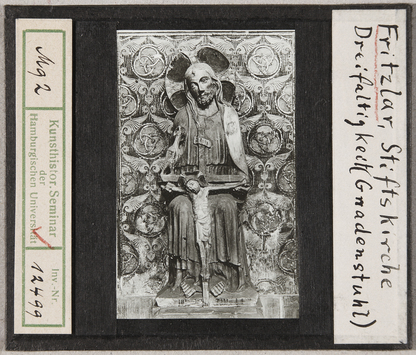 Mg 2
Kunsthistor. Seminar
der
Hamburgischen Universität
Inv.-Nr.
12499
Fritzlar, Stiftskirche
Dreifaltigkeit (Gnadenstuhl)